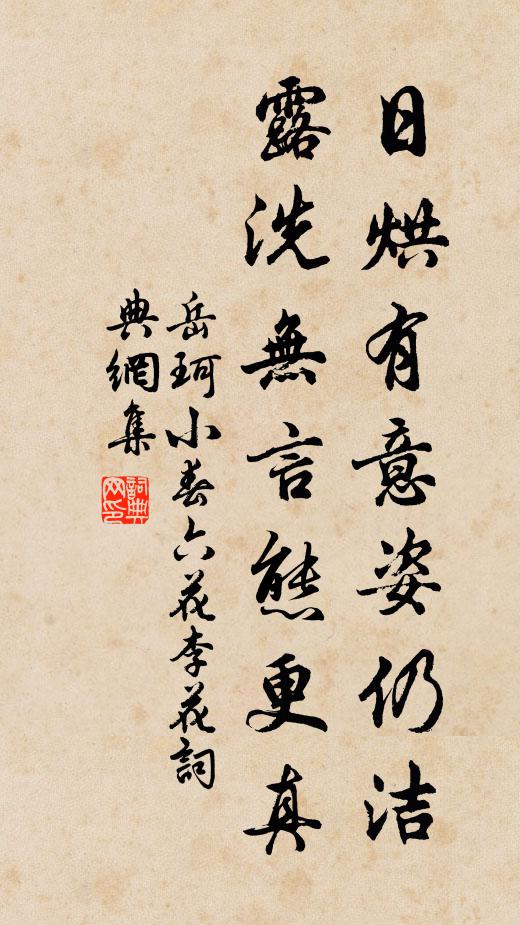 日烘有意姿仍洁
露洗無言態更真
岳珂小春六花李花詞
典網集
詞典
网印